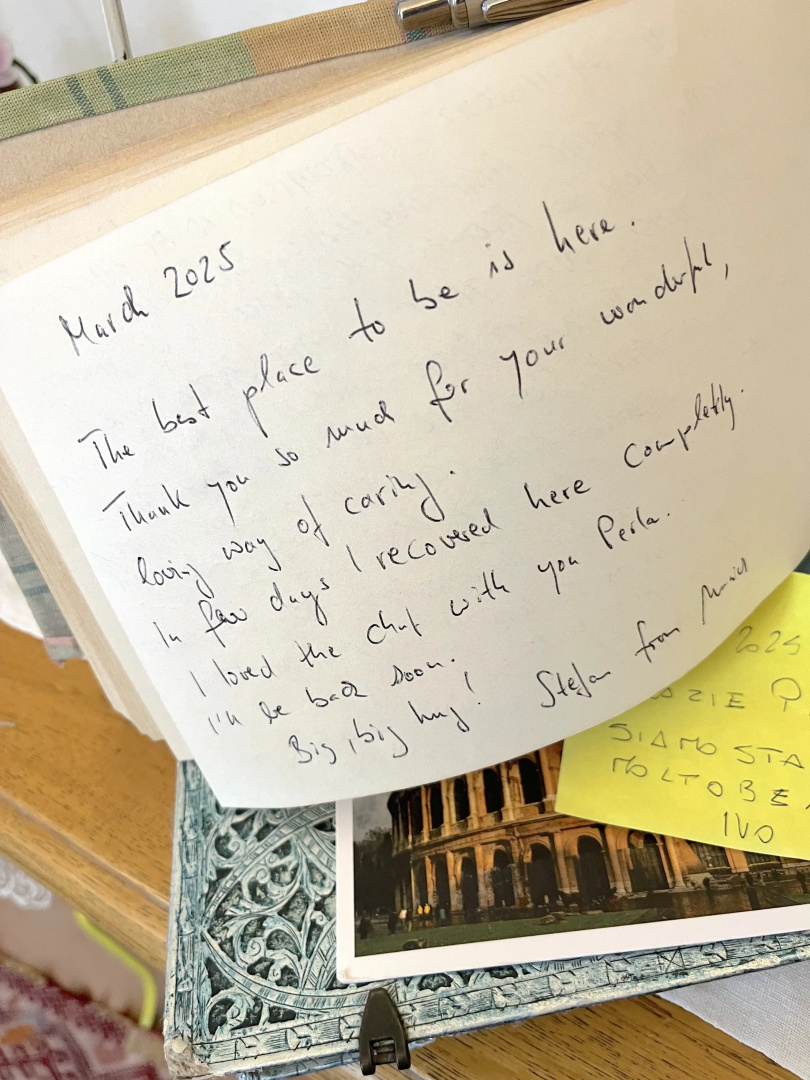 March 2025
The best place to be is here.
Thank you so much for your wonderful,
loving way of caring.
In few days I recovered here completly.
I loved the chat with you Perla.
I'll be back soon.
Big, big hug! Stefan from Munich
2025
ZIE
SIAMO STA
MOLTO BE
IVO